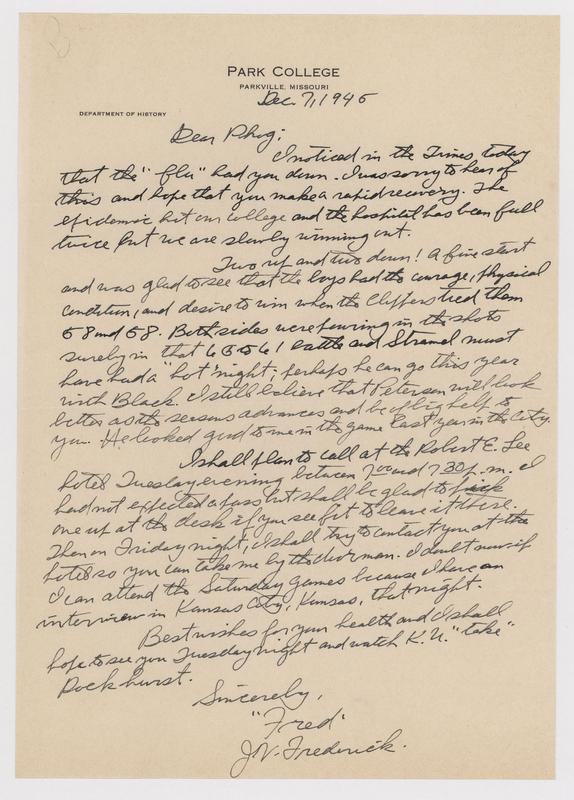 PARK COLLEGE
PARKVILLE, MISSOURI
Dec. 7, 1945
DEPARTMENT OF HISTORY
Dear Phog:
I noticed in the Times, today
that the "flu" had you down. I was sorry to hear of
this and hope that you make a rapid recovery. The
epidemic hit our college and the hospital has been full
twice but we are slowly winning out.
Two up and two down! A fine start
and was glad to see that the boys had the courage, physical
condition, and desire to win when the Clippers tied them
58 and 58. Both sides were pouring in the shots
surely in that 63 to 61 battle and Stramel must
have had a "hot" night; perhaps he can go this year
with Black. I still believe that Peterson will look
better as the seasons advances and be of big help to
you. He looked good to me in the game last year in the City.
I shall plan to call at the Robert E. Lee
hotel Tuesday evening between 7:00 and 7:30 p.m. I
had not expected a pass but shall be glad to pick
one up at the desk if you see fit to leave it there.
Then on Friday night, I shall try to contact you at the
hotel so you can take me by the door man. I don't know if
I can attend the Saturday games because I have an
interview in Kansas City, Kansas, that night.
Best wishes for your health and I shall
hope to see you Tuesday night and watch K.U. "take"
Rockhurst.
Sincerely,
"Fred"
J.V. Frederick.